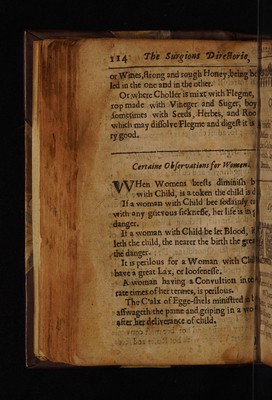 114 The Surgions Directorie,
or Wines, strong and rough Honey, being
led in the one and in the other.
Or, where Choller is mixt with Flegme,
rop made with Vineger and Suger, boy
sometimes with Seeds, Herbes, and Roo
which may dissolve Flegme and digest it is
ry good.
Certaine Observations for Women.
WHen Womens brests diminish
with Child, is a token the child is
If a woman with Child bee sodainly
with any grievous sicknesse, her life is in
danger.
If a woman with Child be let Blood,
leth the child, the nearer the birth the
the danger.
It is perilous for a Woman with Chi
have a great Lax, or loosenesse.
A woman having a Convultion in
rate times of her termes, is perilous.
The Calx of Egge-shels ministred
asswageth the paine and griping in a wo
after her deliverance of child.